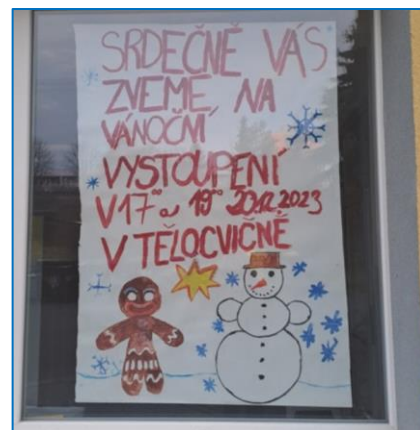 SRDEČNĚ VÁS
ZVEME NA
VÁNOČNÍ
VYSTOUPENÍ
V 17⁰⁰ a 19⁰⁰ 20.12.2023
V TĚLOCVIČNĚ